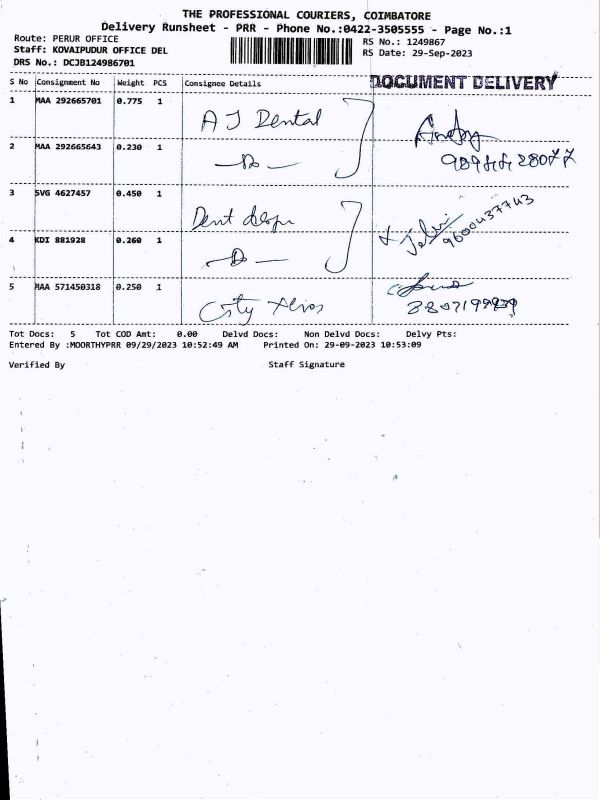 THE PROFESSIONAL COURIERS, COIMBATORE
Delivery Runsheet - PRR - Phone No.:0422-3505555 - Page No.:1
Route: PERUR OFFICE
RS No.: 1249867
Staff: KOVAIPUDUR OFFICE DEL
RS Date: 29-Sep-2023
DRS No.: DCJB124986701
S No Consignment No Weight PCS Consignee Details
DOCUMENT DELIVERY
1 MAA 292665701 0.775 1 A J Dental
2 MAA 292665643 0.230 1 -Do-
3 SVG 4627457 0.450 1 Dent
9600437743
4 KDI 881928 0.260 1 -Do-
5 MAA 571450318 0.250 1 City
Tot Docs: 5 Tot COD Amt: 0.00 Delvd Docs: Non Delvd Docs: Delvy Pts:
Entered By :MOORTHYPRR 09/29/2023 10:52:49 AM Printed On: 29-09-2023 10:53:09
Verified By Staff Signature